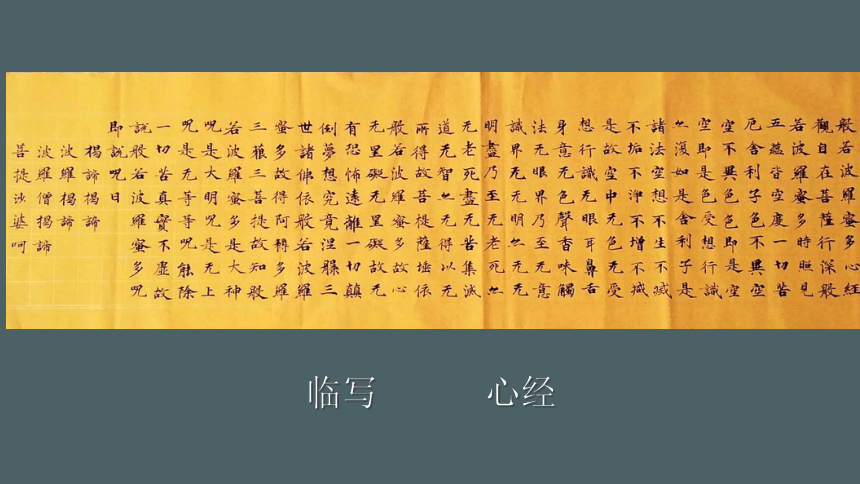 般若波羅蜜多心經
觀自在菩薩行深般
若波羅蜜多時照見
五蘊皆空度一切苦
厄舍利子色不異空
空不異色色即是空
空即是色受想行識
亦復如是舍利子是
諸法空想不生不滅
不垢不淨不增不減
是故空中无色无受
想行識无眼耳鼻舌
身意无色聲香味觸
法无眼界乃至无意
識界无无明亦无无
明盡乃至无老死亦
无老死盡无苦集滅
道无智亦无得以无
所得故菩提薩埵依
般若波羅蜜多故心
无罣礙无罣礙故无
有恐怖遠離一切顛
倒夢想究竟涅槃三
世諸佛依般若波羅
蜜多故得阿耨多羅
三藐三菩提故知般
若波羅蜜多是大神
呪是大明呪是无上
呪是无等等呪能除
一切苦真實不虛故
說般若波羅蜜多呪
即說呪曰
揭諦揭諦
波羅揭諦
波羅僧揭諦
菩提沙婆呵
临写 心经